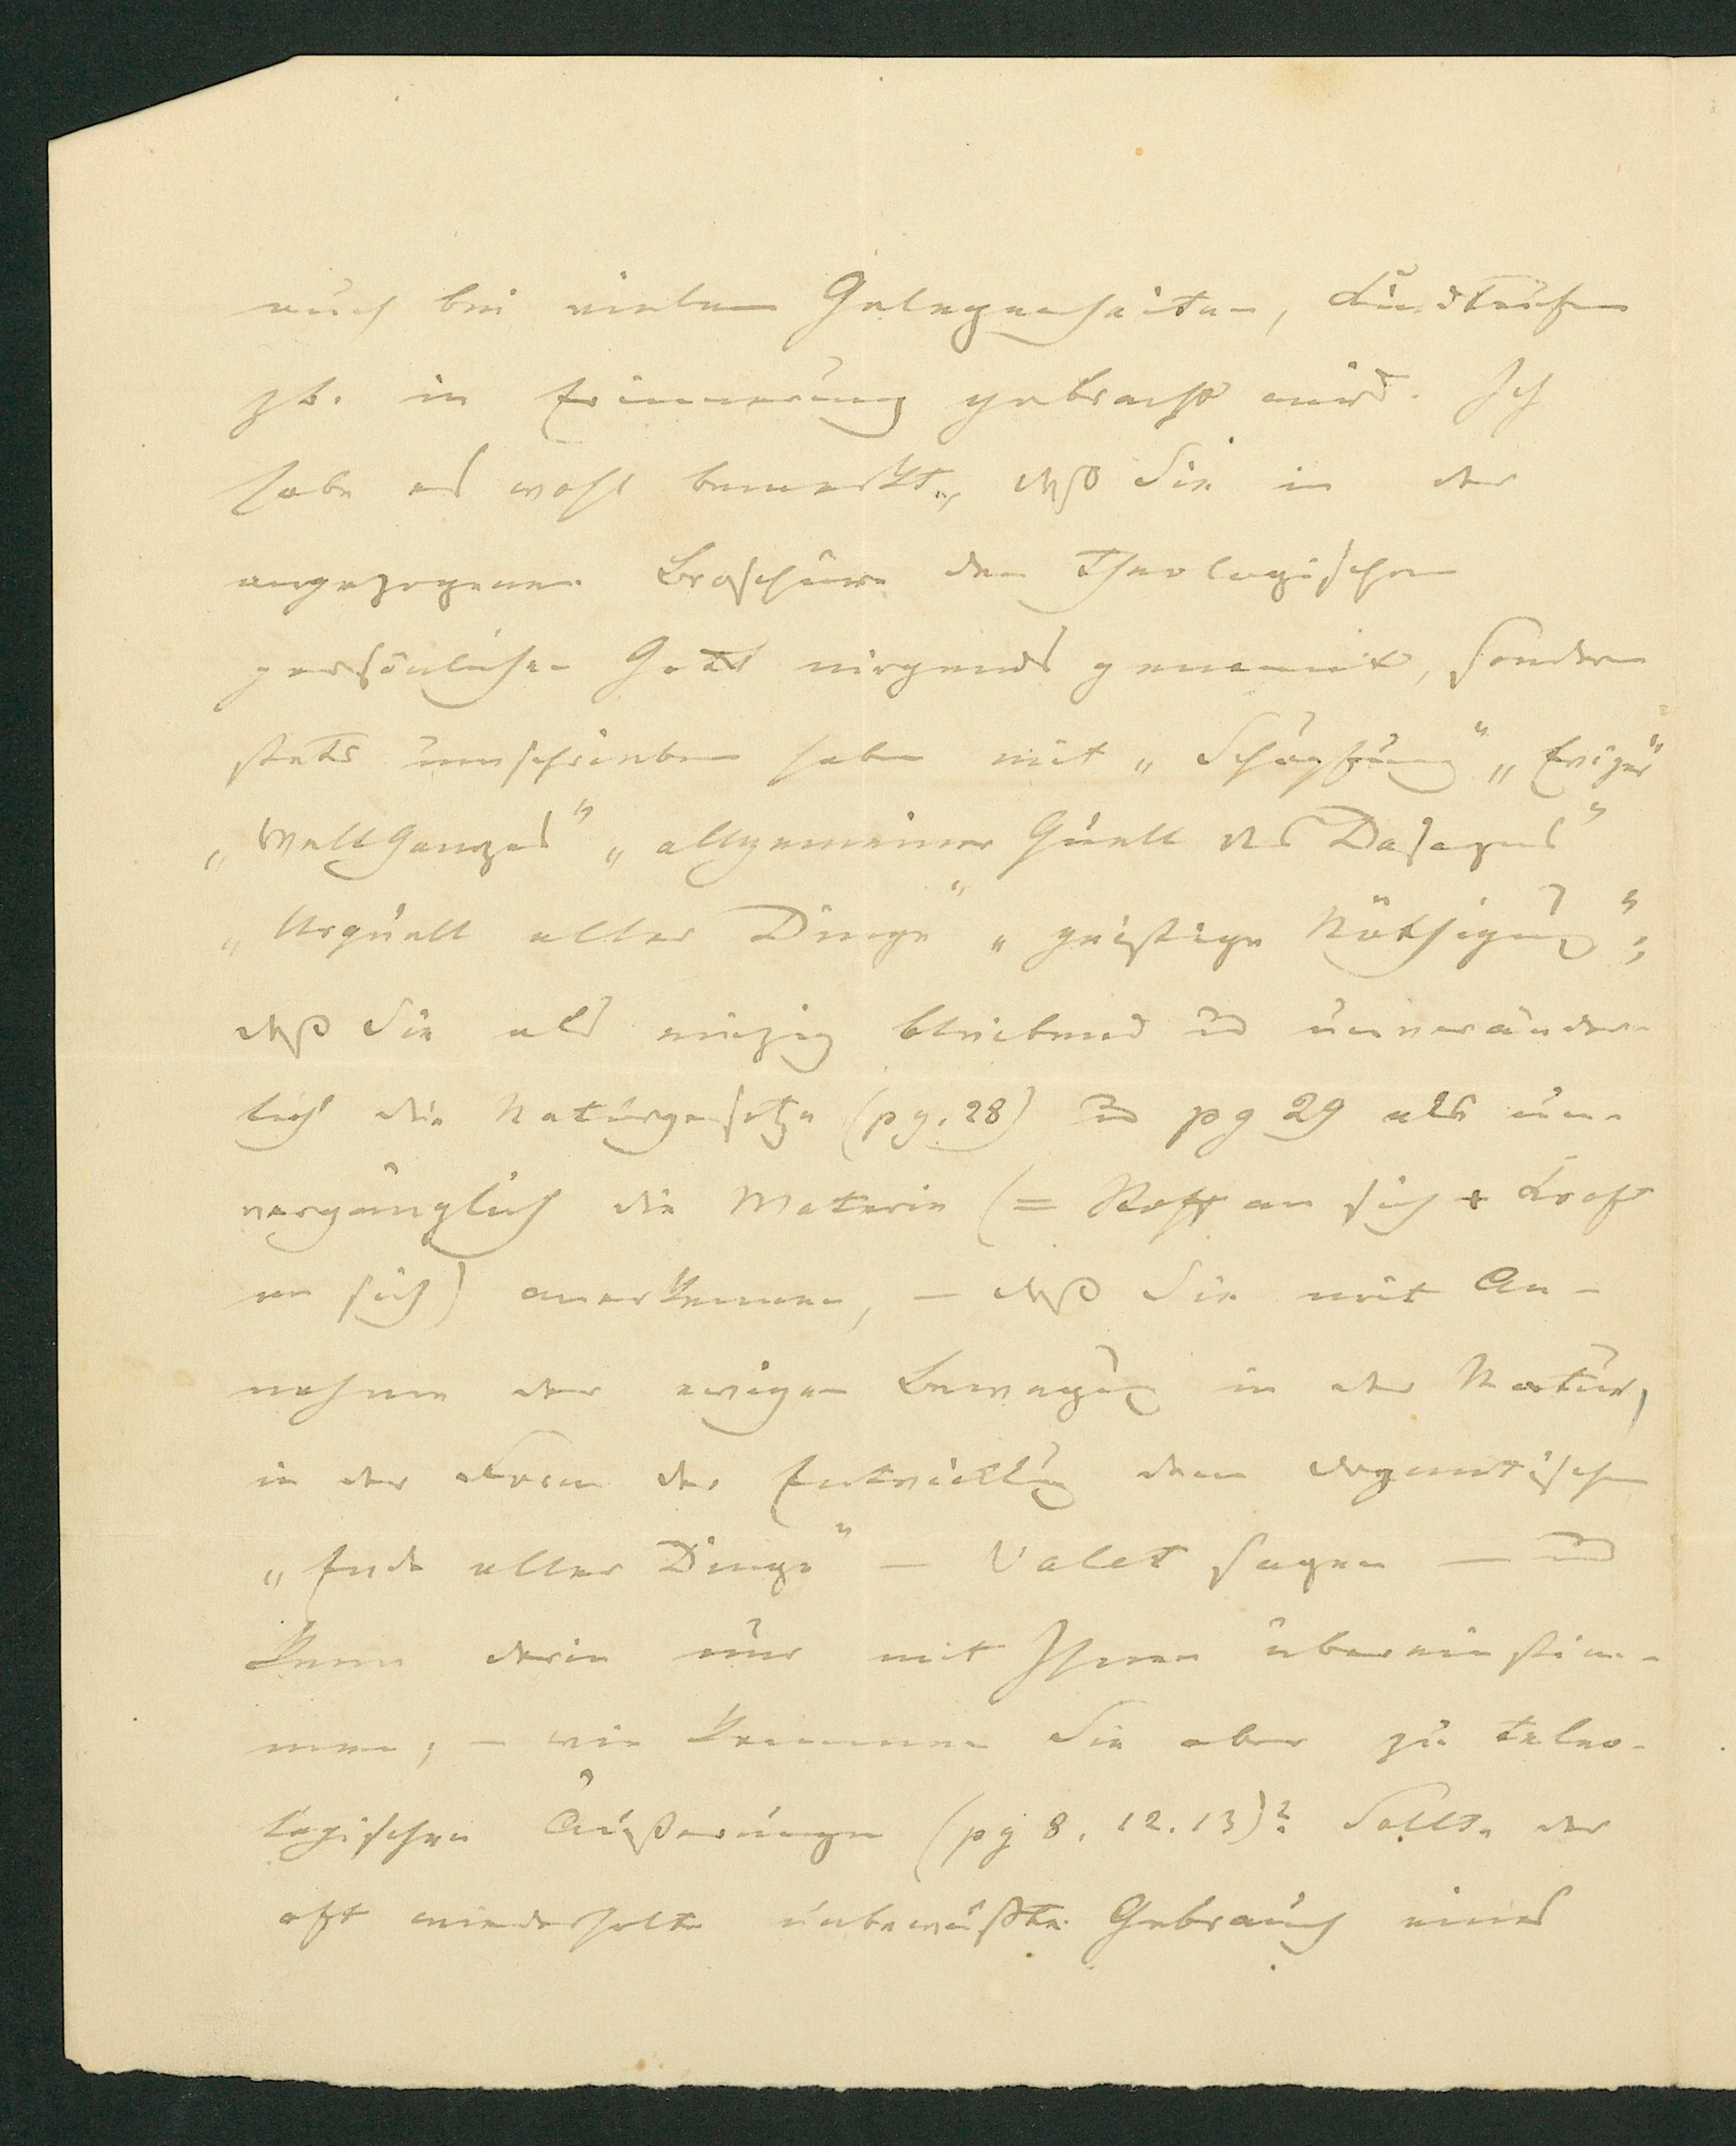 auch bei vielen Gelegenheiten, Kindtaufen
zb. in Erinnerung gebracht wird. Ich
habe es wohl bemerkt, daß Sie in der
angezogenen Broschüre den theologischen
persönlichen Gott nirgends genannt, sondern
stets umschrieben haben mit „Schöpfung" „Ewiges"
„Weltganzes" „allgemeiner Quell des Daseyns"
„Urquell aller Dinge" „geistige Nöthigung";
daß Sie als einzig bleibend und unveränder-
lich die Naturgesetze (pg. 28) und pg 29 als un-
vergänglich die Materie (= Stoff an sich + Kraft
an sich) anerkennen, – daß Sie mit An-
nahme der ewigen Bewegung in der Natur,
in der Form der Entwicklung dem dogmatischen
„Ende aller Dinge" – Valet sagen – und
kann darin nur mit Ihnen übereinstim-
men; – wie kommen Sie aber zu teleo-
logischen Äußerungen (pg 8. 12. 13)? Sollte der
oft wiederholte unbewußte Gebrauch eines